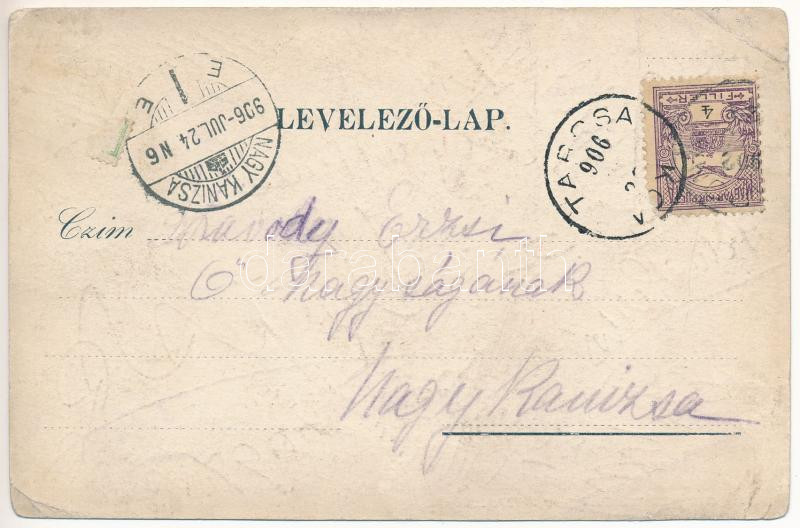 LEVELEZŐ-LAP.
NAGY KANIZSA
906-JUL.24 N6
E 1 E
TARCSA
906
4
FILLÉR
Czim
Erzsi
Ő Nagyságának
Nagy Kanizsa
darabanth